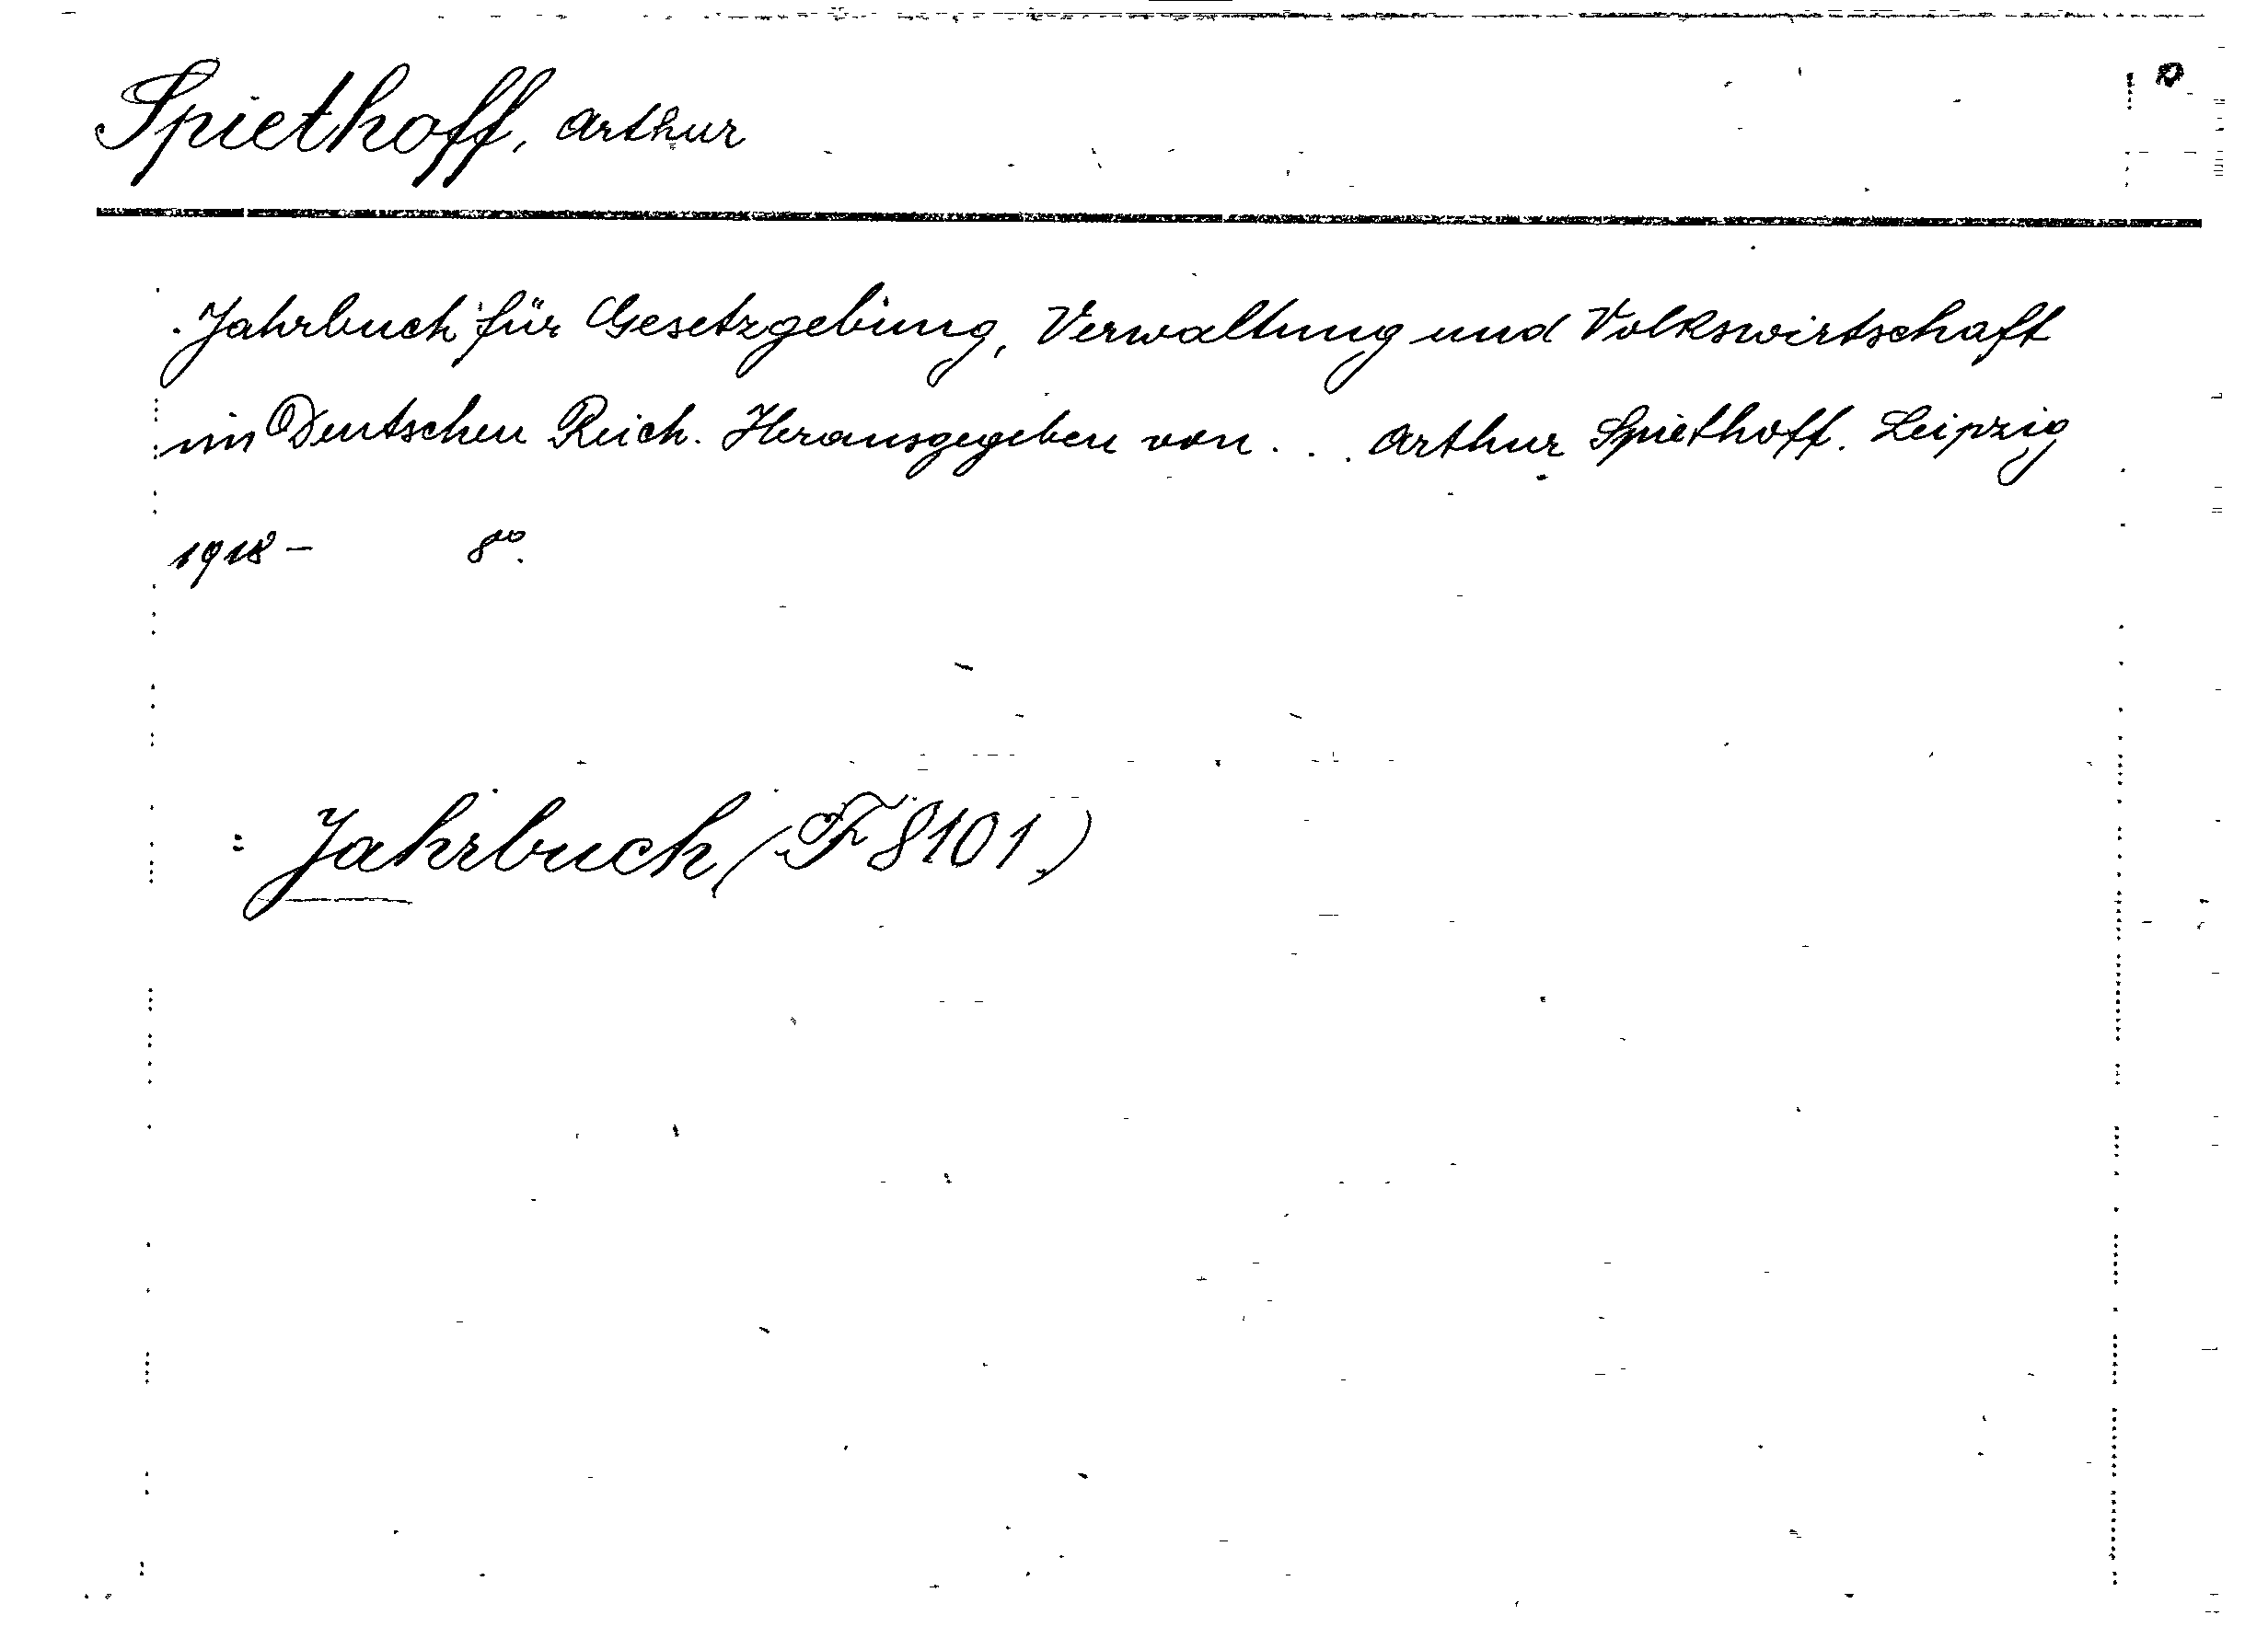 Spiethoff, Arthur
Jahrbuch für Gesetzgebung, Verwaltung und Volkswirtschaft
im Deutschen Reich. Herausgegeben von . . . Arthur Spiethoff. Leipzig
1918 – 8°.
: Jahrbuch (F 8101)